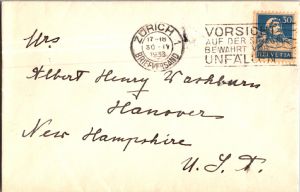 ZÜRICH 1
17-18
30-IV
1933
BRIEFVERSAND
VORSICHT
AUF DER S
BEWAHRT V
UNFÄLLEN
30
HELVETIA
Mrs
Albert Henry Washburn
Hanover
New Hampshire
U.S.A.